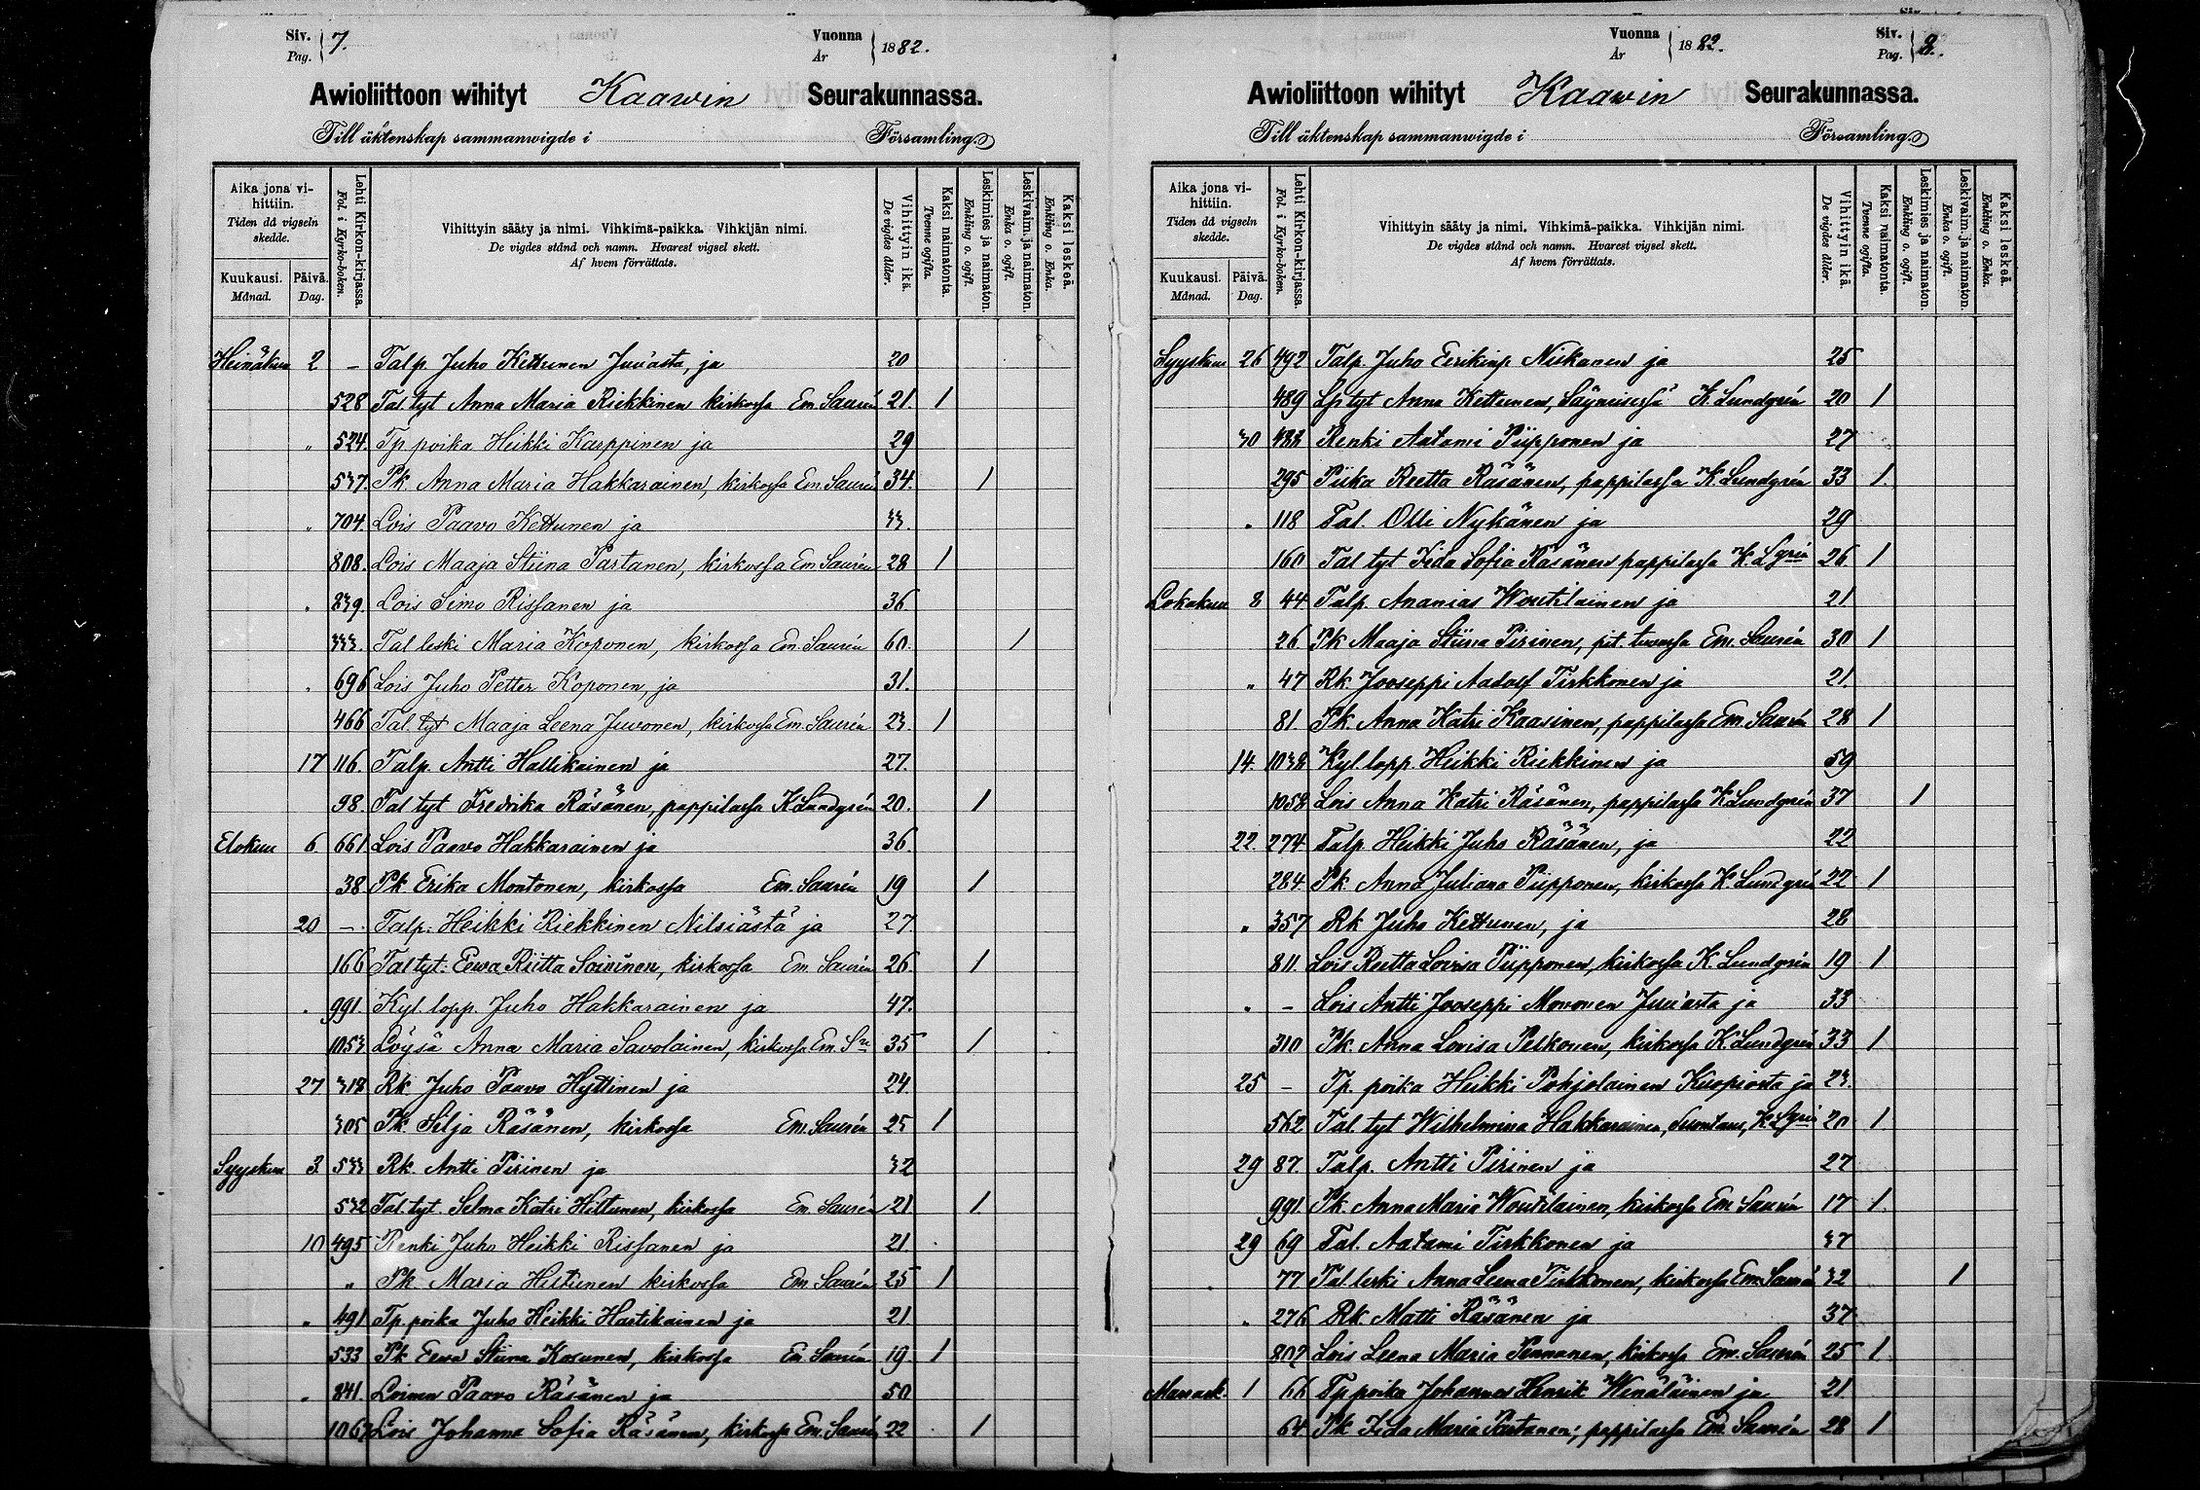 Siv. Pag. 7.
Vuonna År 1882.
Awioliittoon wihityt Kaawin Seurakunnassa.
Till äktenskap sammanwigde i Församling.
Aika jona vihittiin. Tiden då vigseln skedde.
Kuukausi. Månad.
Päivä. Dag.
Lehti Kirkon-kirjassa. Fol. i Kyrko-boken.
Vihittyin sääty ja nimi. Vihkimä-paikka. Vihkijän nimi.
De vigdes stånd och namn. Hvarest vigsel skett.
Af hvem förrättats.
Vihittyin ikä. De vigdes ålder.
Kaksi naimatonta. Tvenne ogifta.
Leskimies ja naimaton. Enkling o. ogift.
Leskivaim. ja naimaton. Enka o. ogift.
Kaksi leskeä. Enkling o. Enka.
Heinäkuu 2 – Talp. Juho Kettunen Juu'asta, ja 20
528 Tal. tyt Anna Maria Riekkinen kirkossa Em. Saurén 21. 1
" 524. Tp poika Heikki Karppinen ja 29
537. Pk. Anna Maria Hakkarainen, kirkossa Em. Saurén 34. 1
" 704. Lois Paavo Kettunen ja 33.
808. Lois Maaja Stiina Partanen, kirkossa Em. Saurén 28 1
" 839. Lois Simo Rissanen ja 36
333. Tal leski Maria Koponen, kirkossa Em. Saurén 60. 1
" 696 Lois Juho Petter Koponen, ja 31.
466 Tal. tyt Maaja Leena Juvonen, kirkossa Em. Saurén 23. 1
17 116. Talp. Antti Hallikainen ja 27.
98. Tal tyt Fredrika Räsänen, pappilassa K Lundgrén 20. 1
Elokuu 6. 661 Lois Paavo Hakkarainen ja 36.
38 Pk Erika Montonen, kirkossa Em. Saurén 19 1
20 – Talp. Heikki Riekkinen Nilsiästä ja 27.
166 Tal tyt. Eewa Riitta Soininen, kirkossa Em. Saurén 26. 1
" 991. Kyl. lopp. Juho Hakkarainen ja 47.
1053 Löysä Anna Maria Savolainen, kirkossa Em. S:n 35 1
27 318 Rk Juho Paavo Hyttinen ja 24.
305 Pk. Silja Räsänen, kirkossa Em. Saurén 25 1
Syyskuu 3. 533 Rk. Antti Pirinen ja 32
532 Tal. tyt. Selma Katri Hiltunen, kirkossa Em. Saurén 21. 1
10 495 Renki Juho Heikki Rissanen ja 21.
" Pk Maria Hiltunen kirkossa Em. Saurén 25 1
" 491 Tp poika Juho Heikki Hartikainen ja 21
533 Pk Eewa Stiina Kosunen, kirkossa Em Saurén 19. 1
" 841. Loinen Paavo Räsänen ja 50
1067 Lois Johanna Sofia Räsänen, kirkossa Em. Saurén 22 1
Vuonna År 1882.
Siv. Pag. 8.
Awioliittoon wihityt Kaawin Seurakunnassa.
Till äktenskap sammanwigde i Församling.
Aika jona vihittiin. Tiden då vigseln skedde.
Kuukausi. Månad.
Päivä. Dag.
Lehti Kirkon-kirjassa. Fol. i Kyrko-boken.
Vihittyin sääty ja nimi. Vihkimä-paikka. Vihkijän nimi.
De vigdes stånd och namn. Hvarest vigsel skett.
Af hvem förrättats.
Vihittyin ikä. De vigdes ålder.
Kaksi naimatonta. Tvenne ogifta.
Leskimies ja naimaton. Enkling o. ogift.
Leskivaim. ja naimaton. Enka o. ogift.
Kaksi leskeä. Enkling o. Enka.
Syyskuu 26 492 Talp. Juho Eerikinp. Niskanen ja 25
489 Lp tyt Anna Kettunen, Säyneisessä K. Lundgrén 20 1
30 488 Renki Aatami Piipponen ja 27
295 Piika Reetta Räsänen, pappilassa K. Lundgrén 33 1.
" 118 Tal. Olli Nykänen ja 29
160 Tal tyt Iida Sofia Räsänen pappilassa K. Lgrén 26. 1
Lokakuu 8 44 Talp. Ananias Woutilainen ja 21
26 Pk Maaja Stiina Pirinen, pit. tuvassa Em. Saurén 30 1
" 47 Rk. Jooseppi Aadolf Tirkkonen ja 21.
81. Pk. Anna Katri Kaasinen, pappilassa Em. Saurén 28 1
14. 1038 Kyl. lopp. Heikki Riekkinen ja 59
1058 Lois Anna Katri Räsänen, pappilassa K. Lundgrén 37 1
22. 274 Talp. Heikki Juho Räsänen, ja 22
284. Pk. Anna Juliana Piipponen, kirkossa K. Lundgrén 22 1
" 357 Rk Juho Kettunen, ja 28
811. Lois Reetta Lovisa Piipponen, kirkossa K. Lundgrén 19 1
" – Lois Antti Jooseppi Mononen Juu'asta ja 33
310 Pk. Anna Lovisa Pelkonen, kirkossa K Lundgrén 33 1
25 – Tp. poika Heikki Pohjolainen Kuopiosta ja 23.
562 Tal. tyt Wilhelmina Hakkarainen, K. Lgrén 20 1
29 87. Talp. Antti Pirinen ja 27
991. Pk. Anna Maria Woutilainen, kirkossa Em Saurén 17 1.
29 69 Tal. Aatami Tirkkonen ja 37
77 Tal leski Anna Leena Tirkkonen, kirkossa Em. Saurén 32 1
" 276 Rk Matti Räsänen ja 37
802 Lois Leena Maria Pennanen, kirkossa Em. Saurén 25 1.
Marrask. 1 66 Tp poika Johannes Henrik Wenäläinen ja 21
64 Pk Iida Maria Partanen, pappilassa Em. Saurén 28 1